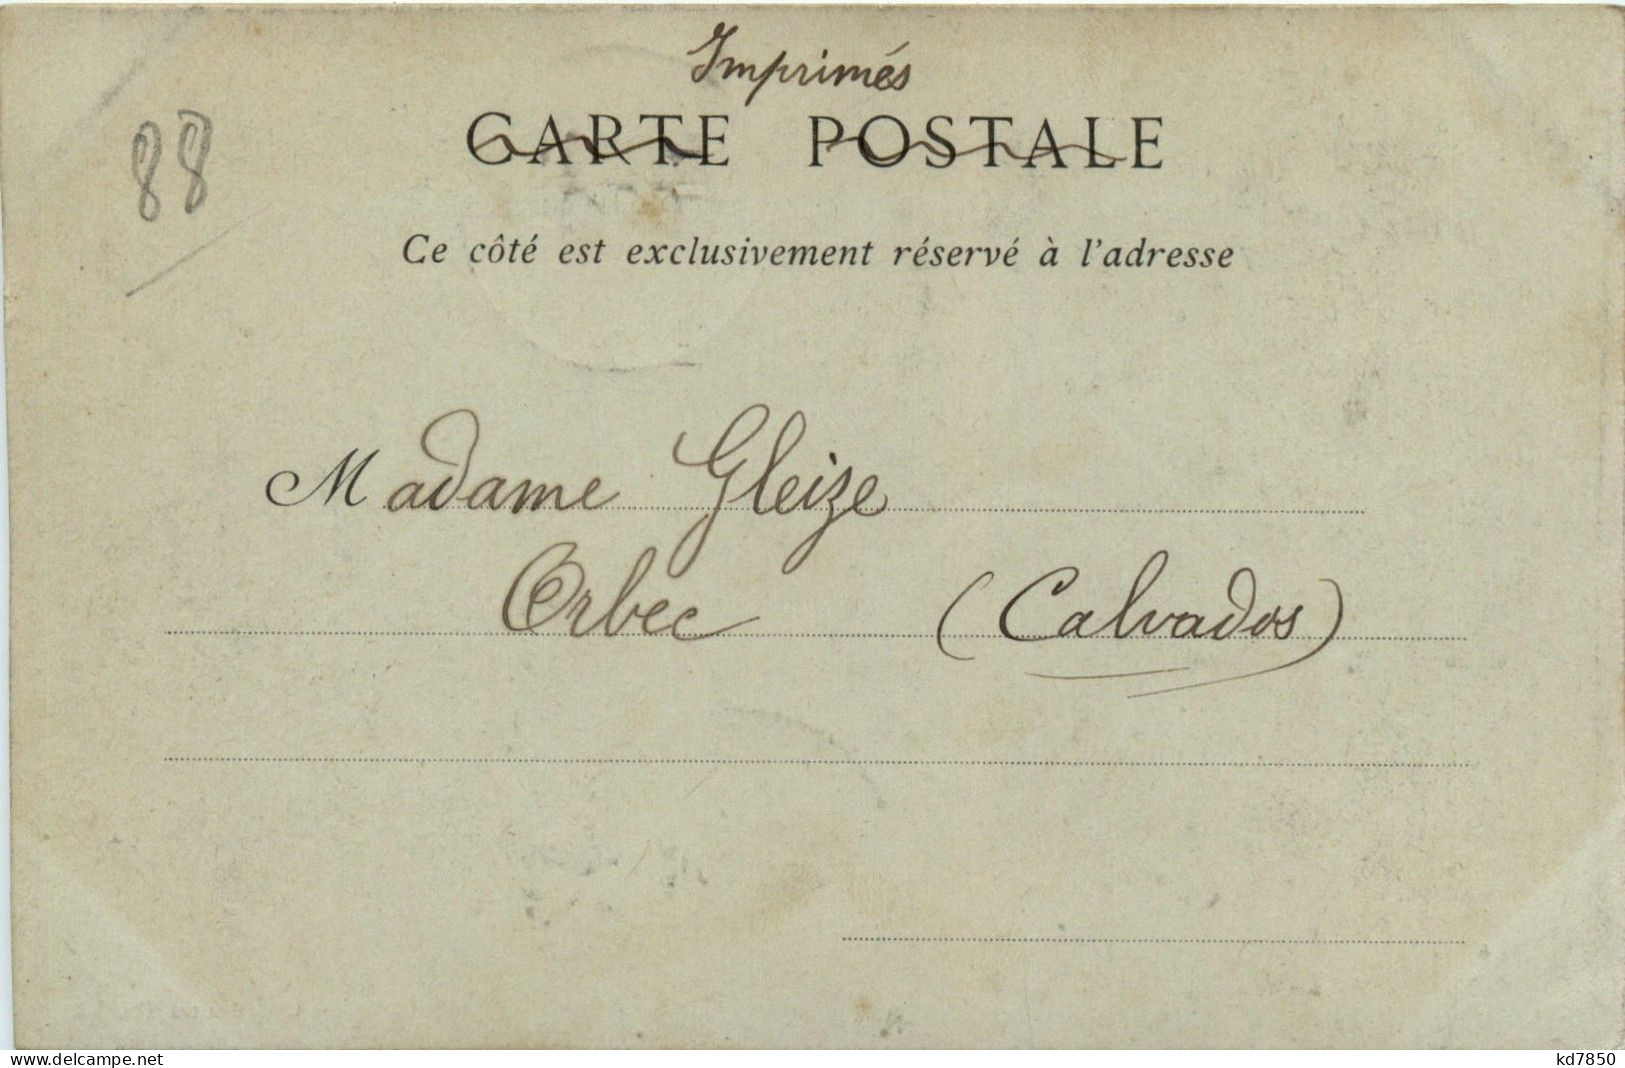 Imprimés
CARTE POSTALE
88
Ce côté est exclusivement réservé à l'adresse
Madame Gleize
Orbec (Calvados)
www.delcampe.net
kd7850